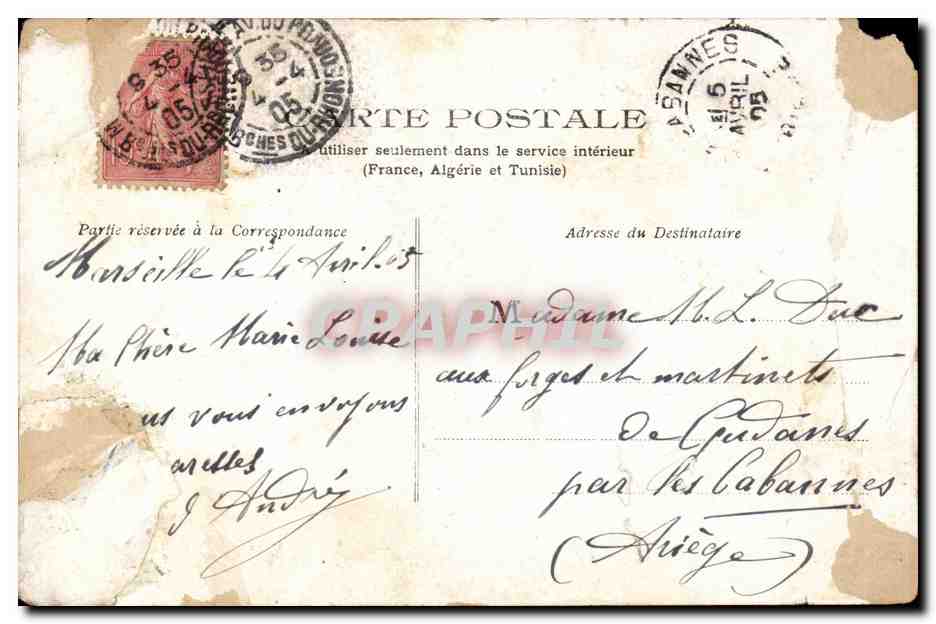 CARTE POSTALE
à utiliser seulement dans le service intérieur
(France, Algérie et Tunisie)
35
4
05
DU-RHONE
35
4
05
CHES DU-RHONE
CABANNES
5
AVRIL
05
Partie réservée à la Correspondance
Marseille le 4 Avril 05
Ma Chère Marie Louise
us vous envoyons
aresses
André
Adresse du Destinataire
Madame M. L. Duc
aux forges et martinets
de Gudanes
par les Cabannes
(Ariège)
CPAPHIL